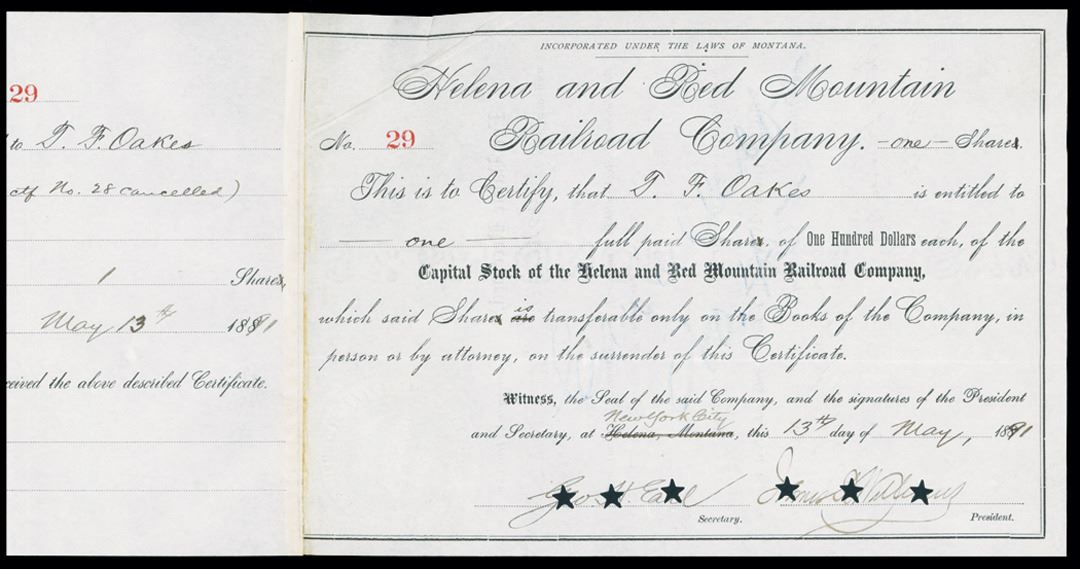 29
to T. F. Oakes
ctf No. 28 cancelled)
1 Shares
May 13th 1891
ceived the above described Certificate.
INCORPORATED UNDER THE LAWS OF MONTANA.
Helena and Red Mountain
No. 29 Railroad Company. - one - Shares.
This is to Certify, that T. F. Oakes is entitled to
one full paid Shares, of One Hundred Dollars each, of the
Capital Stock of the Helena and Red Mountain Railroad Company,
which said Shares is are transferable only on the Books of the Company, in
person or by attorney, on the surrender of this Certificate.
Witness, the Seal of the said Company, and the signatures of the President
New York City
and Secretary, at Helena, Montana, this 13th day of May, 1891
Geo. H. Earl
Secretary. President.